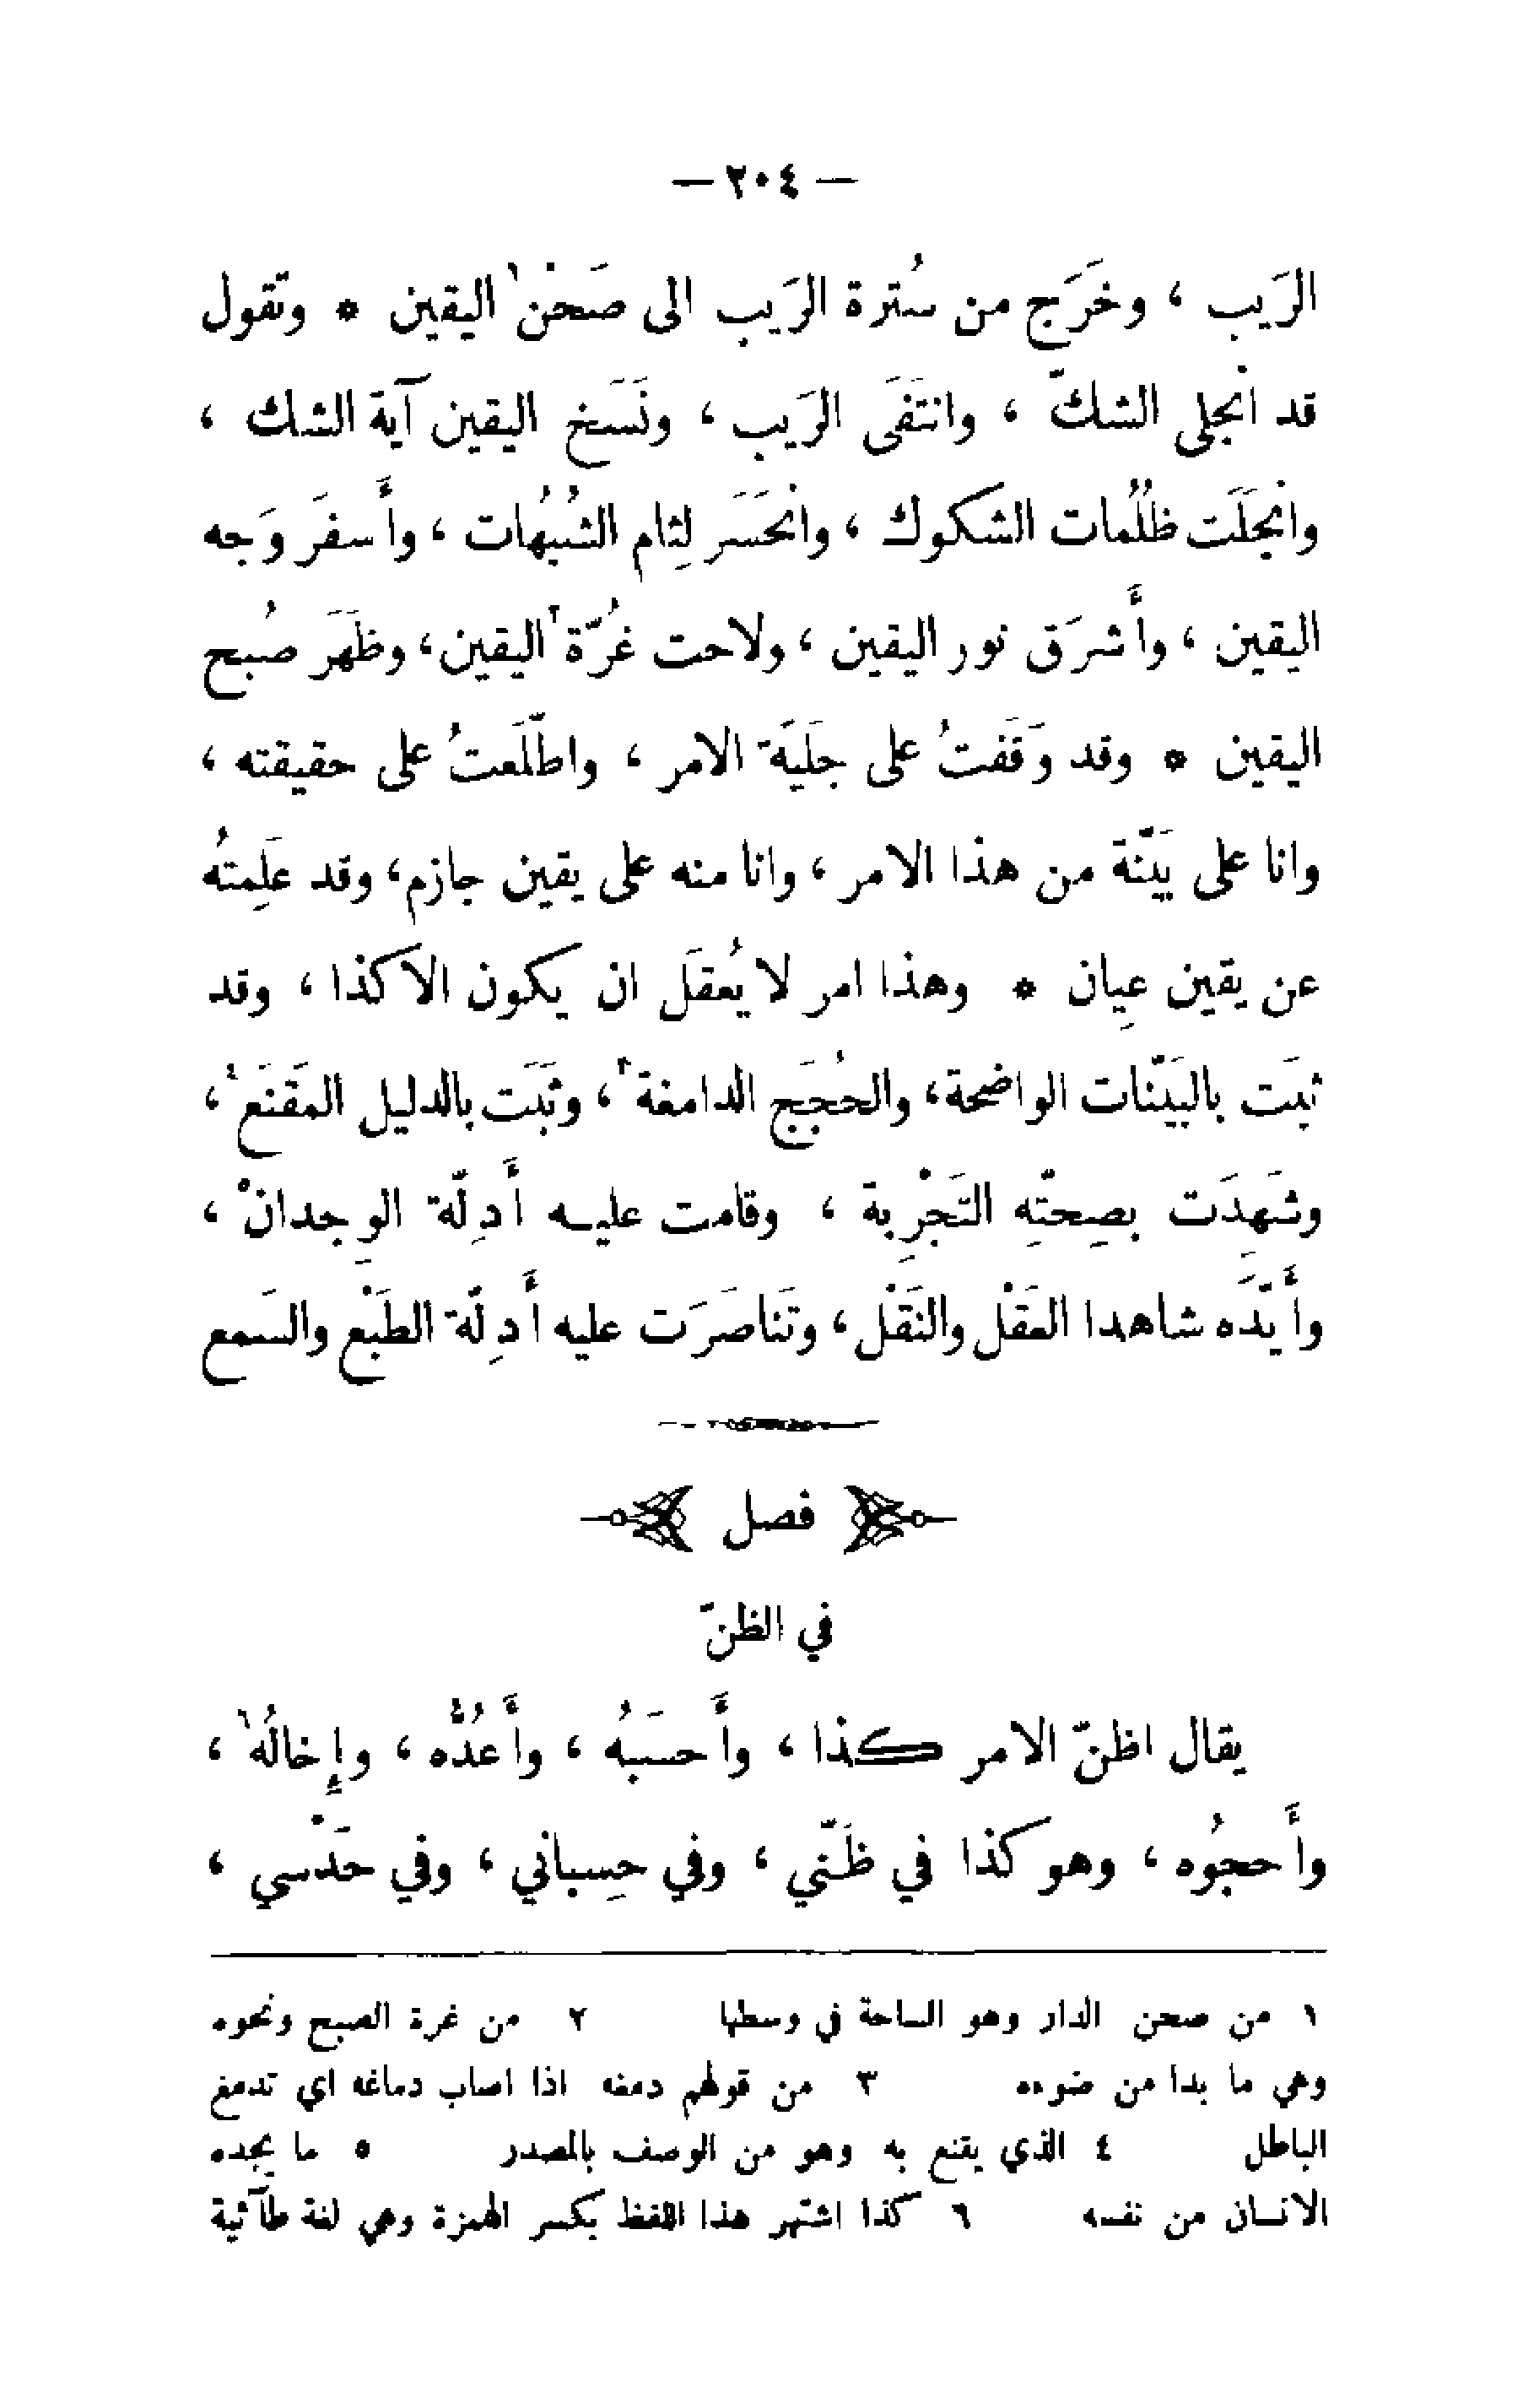 — ٢٠٤ —
الرَيب ، وخَرَج من سُترة الرَيب الى صَحْن١ اليقين * وتقول
قد انْجلى الشكّ ، وانتَفَى الرَيب ، ونَسَخ اليقين آية الشك ،
وانْجَلَت ظُلُمات الشكوك ، وانْحَسَر لِثام الشُبُهات ، وأَسفَر وَجه
اليقين ، وأَشرَق نور اليقين ، ولاحت غُرّة٢ اليقين ، وظَهَر صُبح
اليقين * وقد وَقَفتُ على جَليّة الامر ، واطّلَعتُ على حقيقته ،
وانا على بَيّنة من هذا الامر ، وانا منه على يقين جازم ، وقد عَلِمتُه
عن يقين عِيان * وهذا امر لا يُعقَل ان يكون الا كذا ، وقد
ثبَت بالبَيّنات الواضحة ، والحُجَج الدامغة٣ ، وثَبَت بالدليل المَقْنَع٤ ،
وشَهِدَت بصِحّتِه التَجْرِبة ، وقامت عليه أَدِلّة الوِجدان٥ ،
وأَيّدَه شاهدا العَقْل والنَقْل ، وتَناصَرَت عليه أَدِلّة الطَبْع والسَمع
فصل
في الظنّ
يقال اظنّ الامر كذا ، وأَحسَبُه ، وأَعُدُّه ، وإِخالُه٦ ،
وأَحجُوه ، وهو كذا في ظَنّي ، وفي حِسباني ، وفي حَدْسي ،
١ من صحن الدار وهو الساحة في وسطها ٢ من غرة الصبح ونحوه
وهي ما بدا من ضوءه ٣ من قولهم دمغه اذا اصاب دماغه اي تدمغ
الباطل ٤ الذي يقنع به وهو من الوصف بالمصدر ٥ ما يجده
الانسان من نفسه ٦ كذا اشتهر هذا اللفظ بكسر الهمزة وهي لغة طآئية